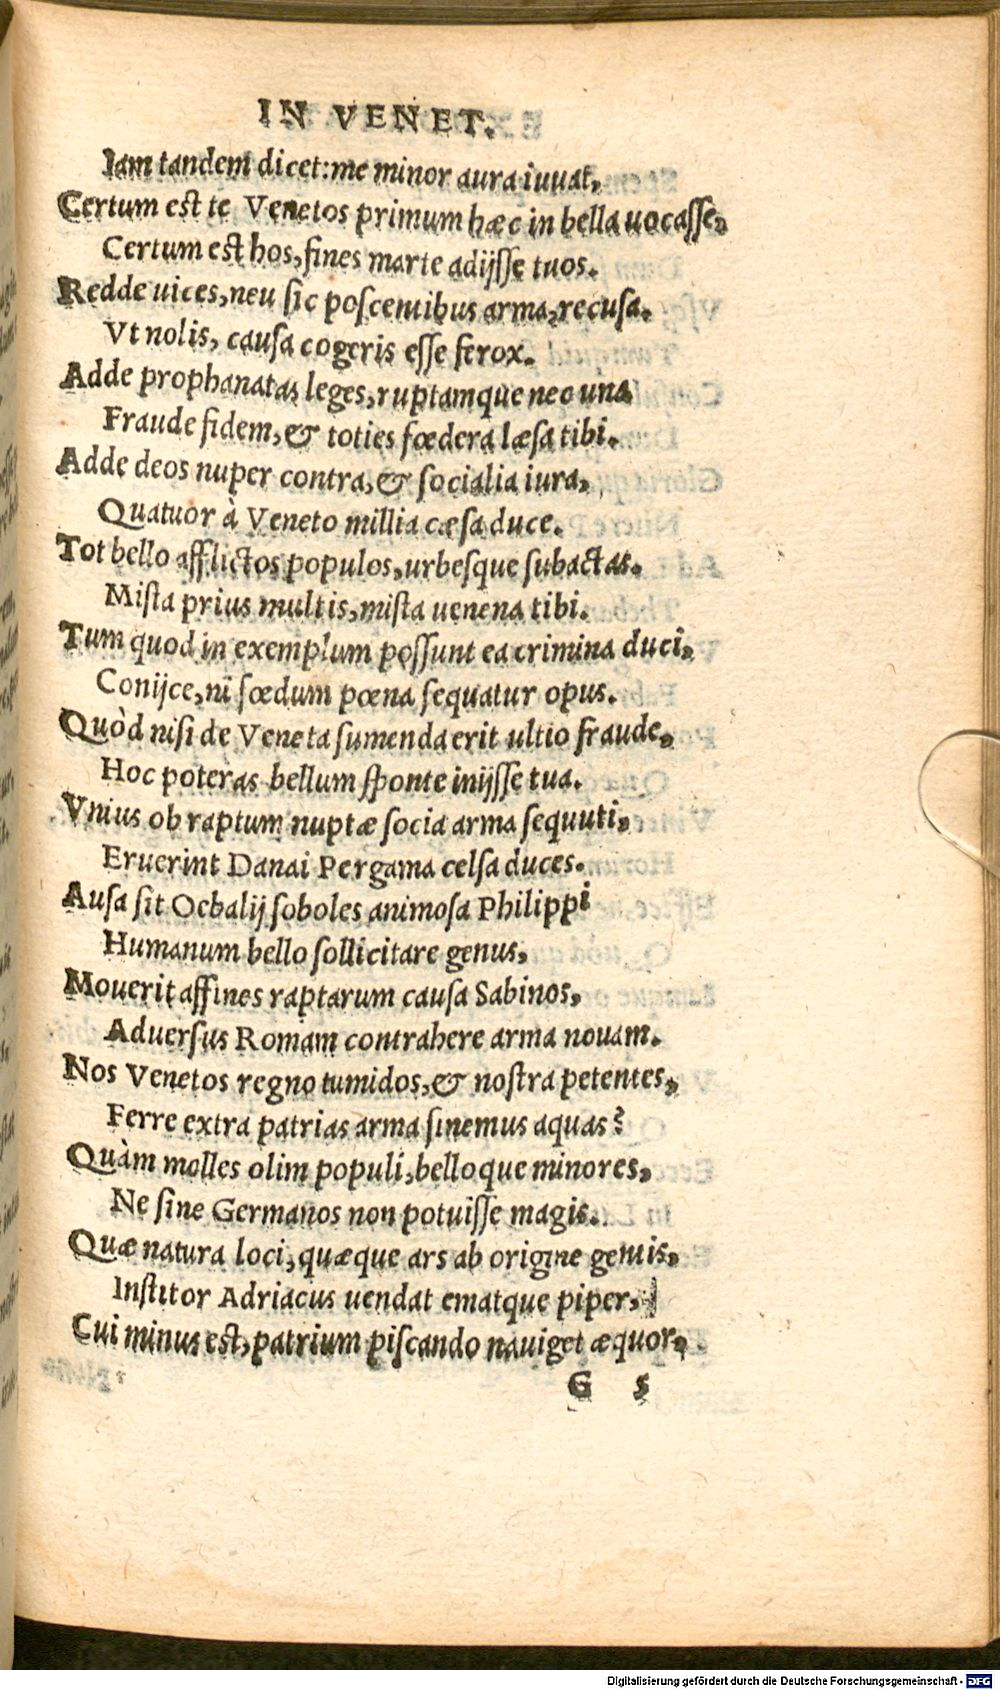 IN VENET.
Iam tandem dicet: me minor aura iuuat,
Certum est te Venetos primum hæc in bella uocasse,
Certum est hos, fines marte adijsse tuos.
Redde uices, neu sic poscentibus arma, recusa.
Vt nolis, causa cogeris esse ferox.
Adde prophanatas leges, ruptamque nec una
Fraude fidem, & toties fœdera læsa tibi.
Adde deos nuper contra, & socialia iura,
Quatuor à Veneto millia cæsa duce.
Tot bello afflictos populos, urbesque subactas.
Mista prius multis, mista uenena tibi.
Tum quod in exemplum possunt ea crimina duci,
Conijce, ni fœdum pœna sequatur opus.
Quòd nisi de Veneta sumenda erit ultio fraude,
Hoc poteras bellum sponte inijsse tua.
Vnius ob raptum nuptæ socia arma sequuti,
Eruerint Danai Pergama celsa duces.
Ausa sit Oebalij soboles animosa Philippi
Humanum bello sollicitare genus,
Mouerit affines raptarum causa Sabinos,
Aduersus Romam contrahere arma nouam.
Nos Venetos regno tumidos, & nostra petentes,
Ferre extra patrias arma sinemus aquas?
Quàm molles olim populi, belloque minores,
Ne sine Germanos non potuisse magis.
Quæ natura loci, quæque ars ab origine gentis,
Institor Adriacus uendat ematque piper,
Cui minus est, patrium piscando nauiget æquor,
G 5
Digitalisierung gefördert durch die Deutsche Forschungsgemeinschaft - DFG